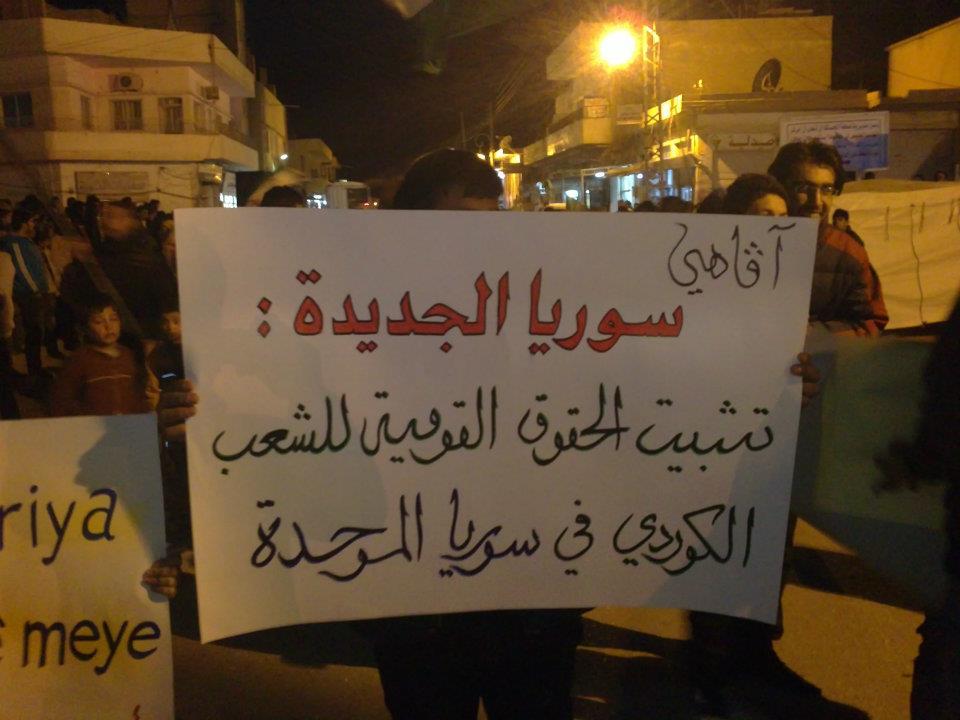 آفاهي
سوريا الجديدة :
تثبيت الحقوق القومية للشعب
الكوردي في سوريا الموحدة
riya
meye
صيدلية